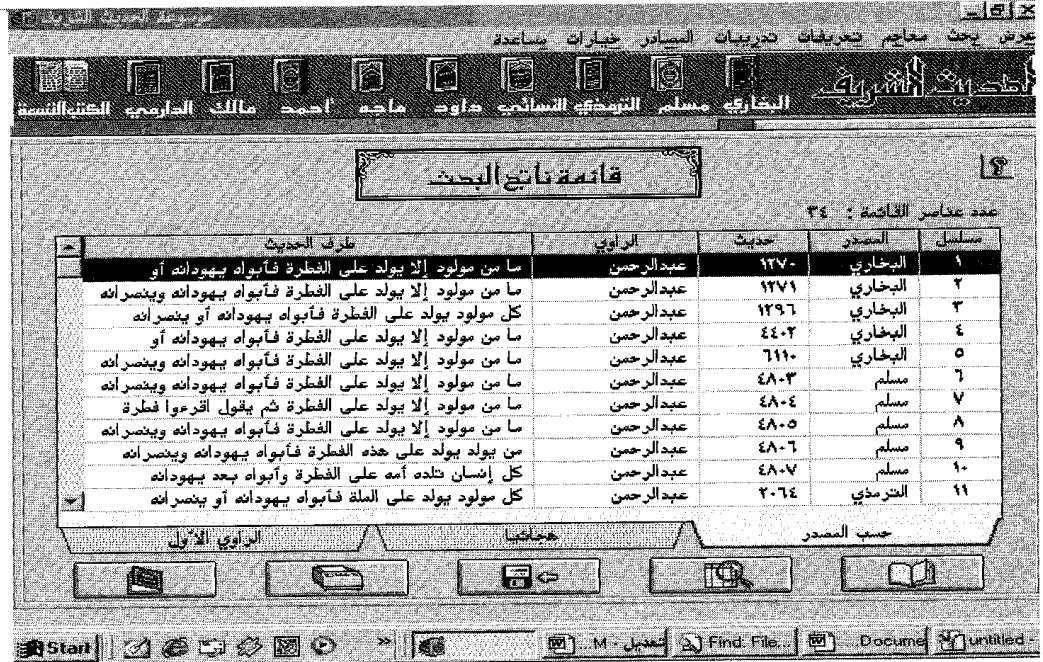 موسوعة الحديث الشريف
عرض بحث معاجم تعريفات تدريبات المصادر خيارات مساعدة
الحديث الشريف
البخاري مسلم الترمذي النسائي داود ماجه أحمد مالك الدارمي الكتب التسعة
قائمة ناتج البحث
عدد عناصر القائمة : ٣٤
مسلسل المصدر حديث الراوي طرف الحديث
١ البخاري ١٢٧٠ عبدالرحمن ما من مولود إلا يولد على الفطرة فأبواه يهودانه أو
٢ البخاري ١٢٧١ عبدالرحمن ما من مولود إلا يولد على الفطرة فأبواه يهودانه وينصرانه
٣ البخاري ١٢٩٦ عبدالرحمن كل مولود يولد على الفطرة فأبواه يهودانه أو ينصرانه
٤ البخاري ٤٤٠٢ عبدالرحمن ما من مولود إلا يولد على الفطرة فأبواه يهودانه أو
٥ البخاري ٦١١٠ عبدالرحمن ما من مولود إلا يولد على الفطرة فأبواه يهودانه وينصرانه
٦ مسلم ٤٨٠٣ عبدالرحمن ما من مولود إلا يولد على الفطرة فأبواه يهودانه وينصرانه
٧ مسلم ٤٨٠٤ عبدالرحمن ما من مولود إلا يولد على الفطرة ثم يقول اقرءوا فطرة
٨ مسلم ٤٨٠٥ عبدالرحمن ما من مولود إلا يولد على الفطرة فأبواه يهودانه وينصرانه
٩ مسلم ٤٨٠٦ عبدالرحمن من يولد يولد على هذه الفطرة فأبواه يهودانه وينصرانه
١٠ مسلم ٤٨٠٧ عبدالرحمن كل إنسان تلده أمه على الفطرة وأبواه بعد يهودانه
١١ الترمذي ٢٠٦٤ عبدالرحمن كل مولود يولد على الملة فأبواه يهودانه أو ينصرانه
حسب المصدر هجائيا الراوي الأول
Start » تعديل - M... Find: File... Docume... untitled -